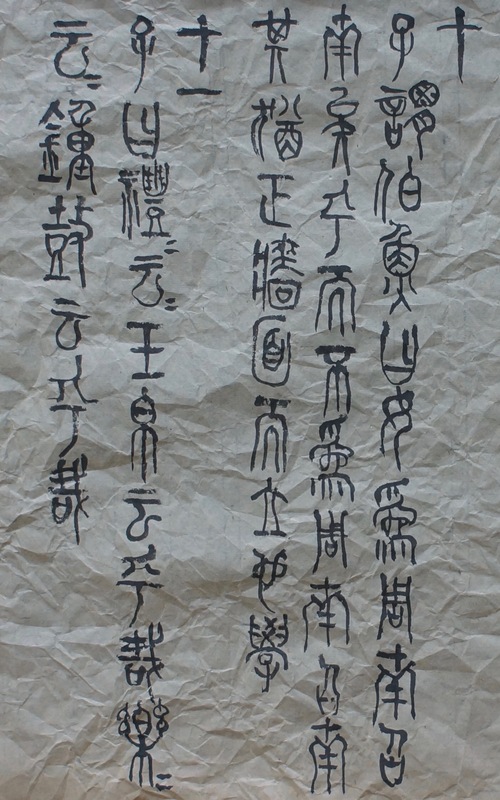 十
子謂伯魚曰女為周南召
南矣乎而不為周南召南
其猶正牆面而立也學
十一
子曰禮〻云〻玉帛云乎哉樂〻
云〻鐘鼓云乎哉